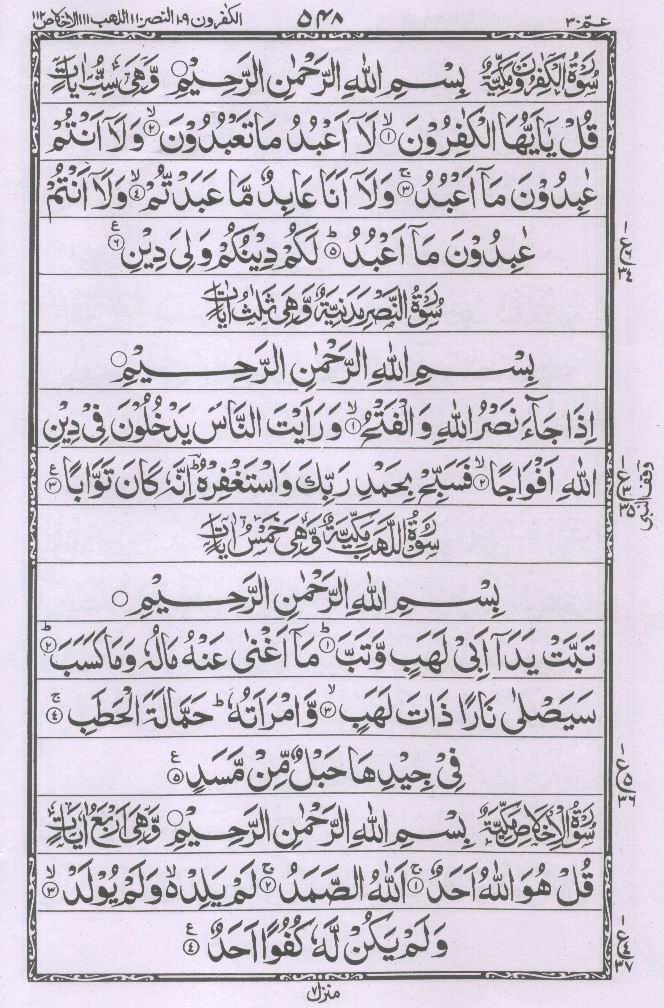 عـمّ ٣٠ ٥٤٨ الكفرون ١٠٩ النصر ١١٠ اللهب ١١١ الاخلاص ١١٢
سُوْرَةُ الْكٰفِرُوْنَ مَكِّيَّةٌ بِسْمِ اللهِ الرَّحْمٰنِ الرَّحِيْمِ ○ وَّهِىَ سِتُّ اٰيَاتٍ
قُلْ يٰۤاَيُّهَا الْكٰفِرُوْنَ ۙ‏﴿۱﴾ لَاۤ اَعْبُدُ مَا تَعْبُدُوْنَ ۙ‏﴿۲﴾ وَلَاۤ اَنْتُمْ
عٰبِدُوْنَ مَاۤ اَعْبُدُ ۚ‏﴿۳﴾ وَلَاۤ اَنَا عَابِدٌ مَّا عَبَدْتُّمْ ۙ‏﴿۴﴾ وَلَاۤ اَنْتُمْ
عٰبِدُوْنَ مَاۤ اَعْبُدُ ؕ‏﴿۵﴾ لَكُمْ دِيْنُكُمْ وَلِىَ دِيْنِ ‏﴿۶﴾ ع
سُوْرَةُ النَّصْرِ مَدَنِيَّةٌ وَّهِىَ ثَلٰثُ اٰيَاتٍ
بِسْمِ اللهِ الرَّحْمٰنِ الرَّحِيْمِ ○
اِذَا جَآءَ نَصْرُ اللهِ وَالْفَتْحُ ۙ‏﴿۱﴾ وَرَاَيْتَ النَّاسَ يَدْخُلُوْنَ فِىْ دِيْنِ
اللهِ اَفْوَاجًا ۙ‏﴿۲﴾ فَسَبِّحْ بِحَمْدِ رَبِّكَ وَاسْتَغْفِرْهُ ؕ اِنَّهٗ كَانَ تَوَّابًا ‏﴿۳﴾ ع
وقف النبی
سُوْرَةُ اللَّهَبِ مَكِّيَّةٌ وَّهِىَ خَمْسُ اٰيَاتٍ
بِسْمِ اللهِ الرَّحْمٰنِ الرَّحِيْمِ ○
تَبَّتْ يَدَاۤ اَبِىْ لَهَبٍ وَّتَبَّ ؕ‏﴿۱﴾ مَاۤ اَغْنٰى عَنْهُ مَالُهٗ وَمَا كَسَبَ ؕ‏﴿۲﴾
سَيَصْلٰى نَارًا ذَاتَ لَهَبٍ ۙ‏﴿۳﴾ وَّامْرَاَتُهٗ ؕ حَمَّالَةَ الْحَطَبِ ۚ‏﴿۴﴾
فِىْ جِيْدِهَا حَبْلٌ مِّنْ مَّسَدٍ ‏﴿۵﴾ ع
سُوْرَةُ الْاِخْلَاصِ مَكِّيَّةٌ بِسْمِ اللهِ الرَّحْمٰنِ الرَّحِيْمِ ○ وَّهِىَ اَرْبَعُ اٰيَاتٍ
قُلْ هُوَ اللهُ اَحَدٌ ۚ‏﴿۱﴾ اَللهُ الصَّمَدُ ۚ‏﴿۲﴾ لَمْ يَلِدْ ۙ وَلَمْ يُوْلَدْ ۙ‏﴿۳﴾
وَلَمْ يَكُنْ لَّهٗ كُفُوًا اَحَدٌ ‏﴿۴﴾ ع
منزل ٧